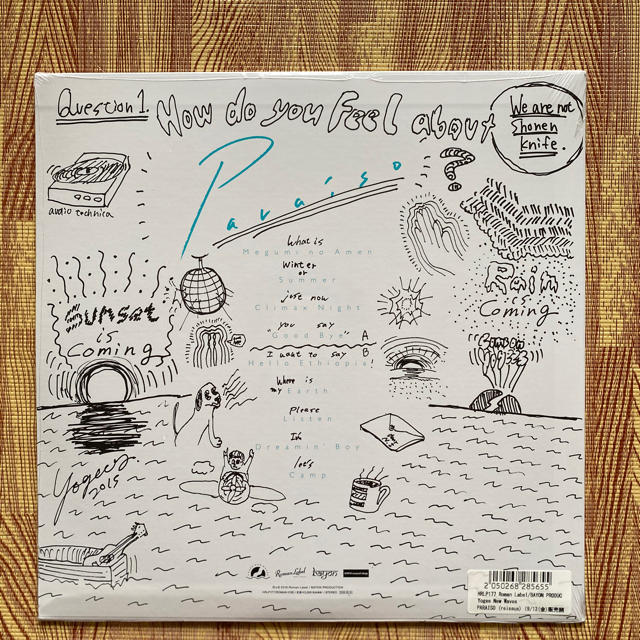 Question 1.
How do you Feel about
Paraíso
?
We are not
Shonen
Knife.
audio technica
What is
Megumi no Amen
Winter
or
Summer
just now
Climax Night
"you say
Good Bye"
A
I want to say
B
Hello Ethiopia
Where is
my Earth
Please
Listen
Im
Dreamin' Boy
let's
Camp
Sunset
is
Coming
Rain
is
Coming
Yogees
2015
Roman Label
bayon
2 050268 285655
HRLP177 Roman Label/BAYON PRODUC
Yogee New Waves
PARAISO (reissue) (9/13(金)販売開